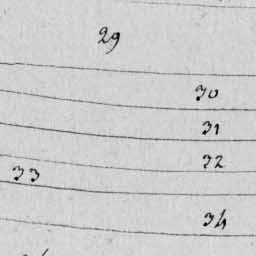 29
30
31
32
33
34